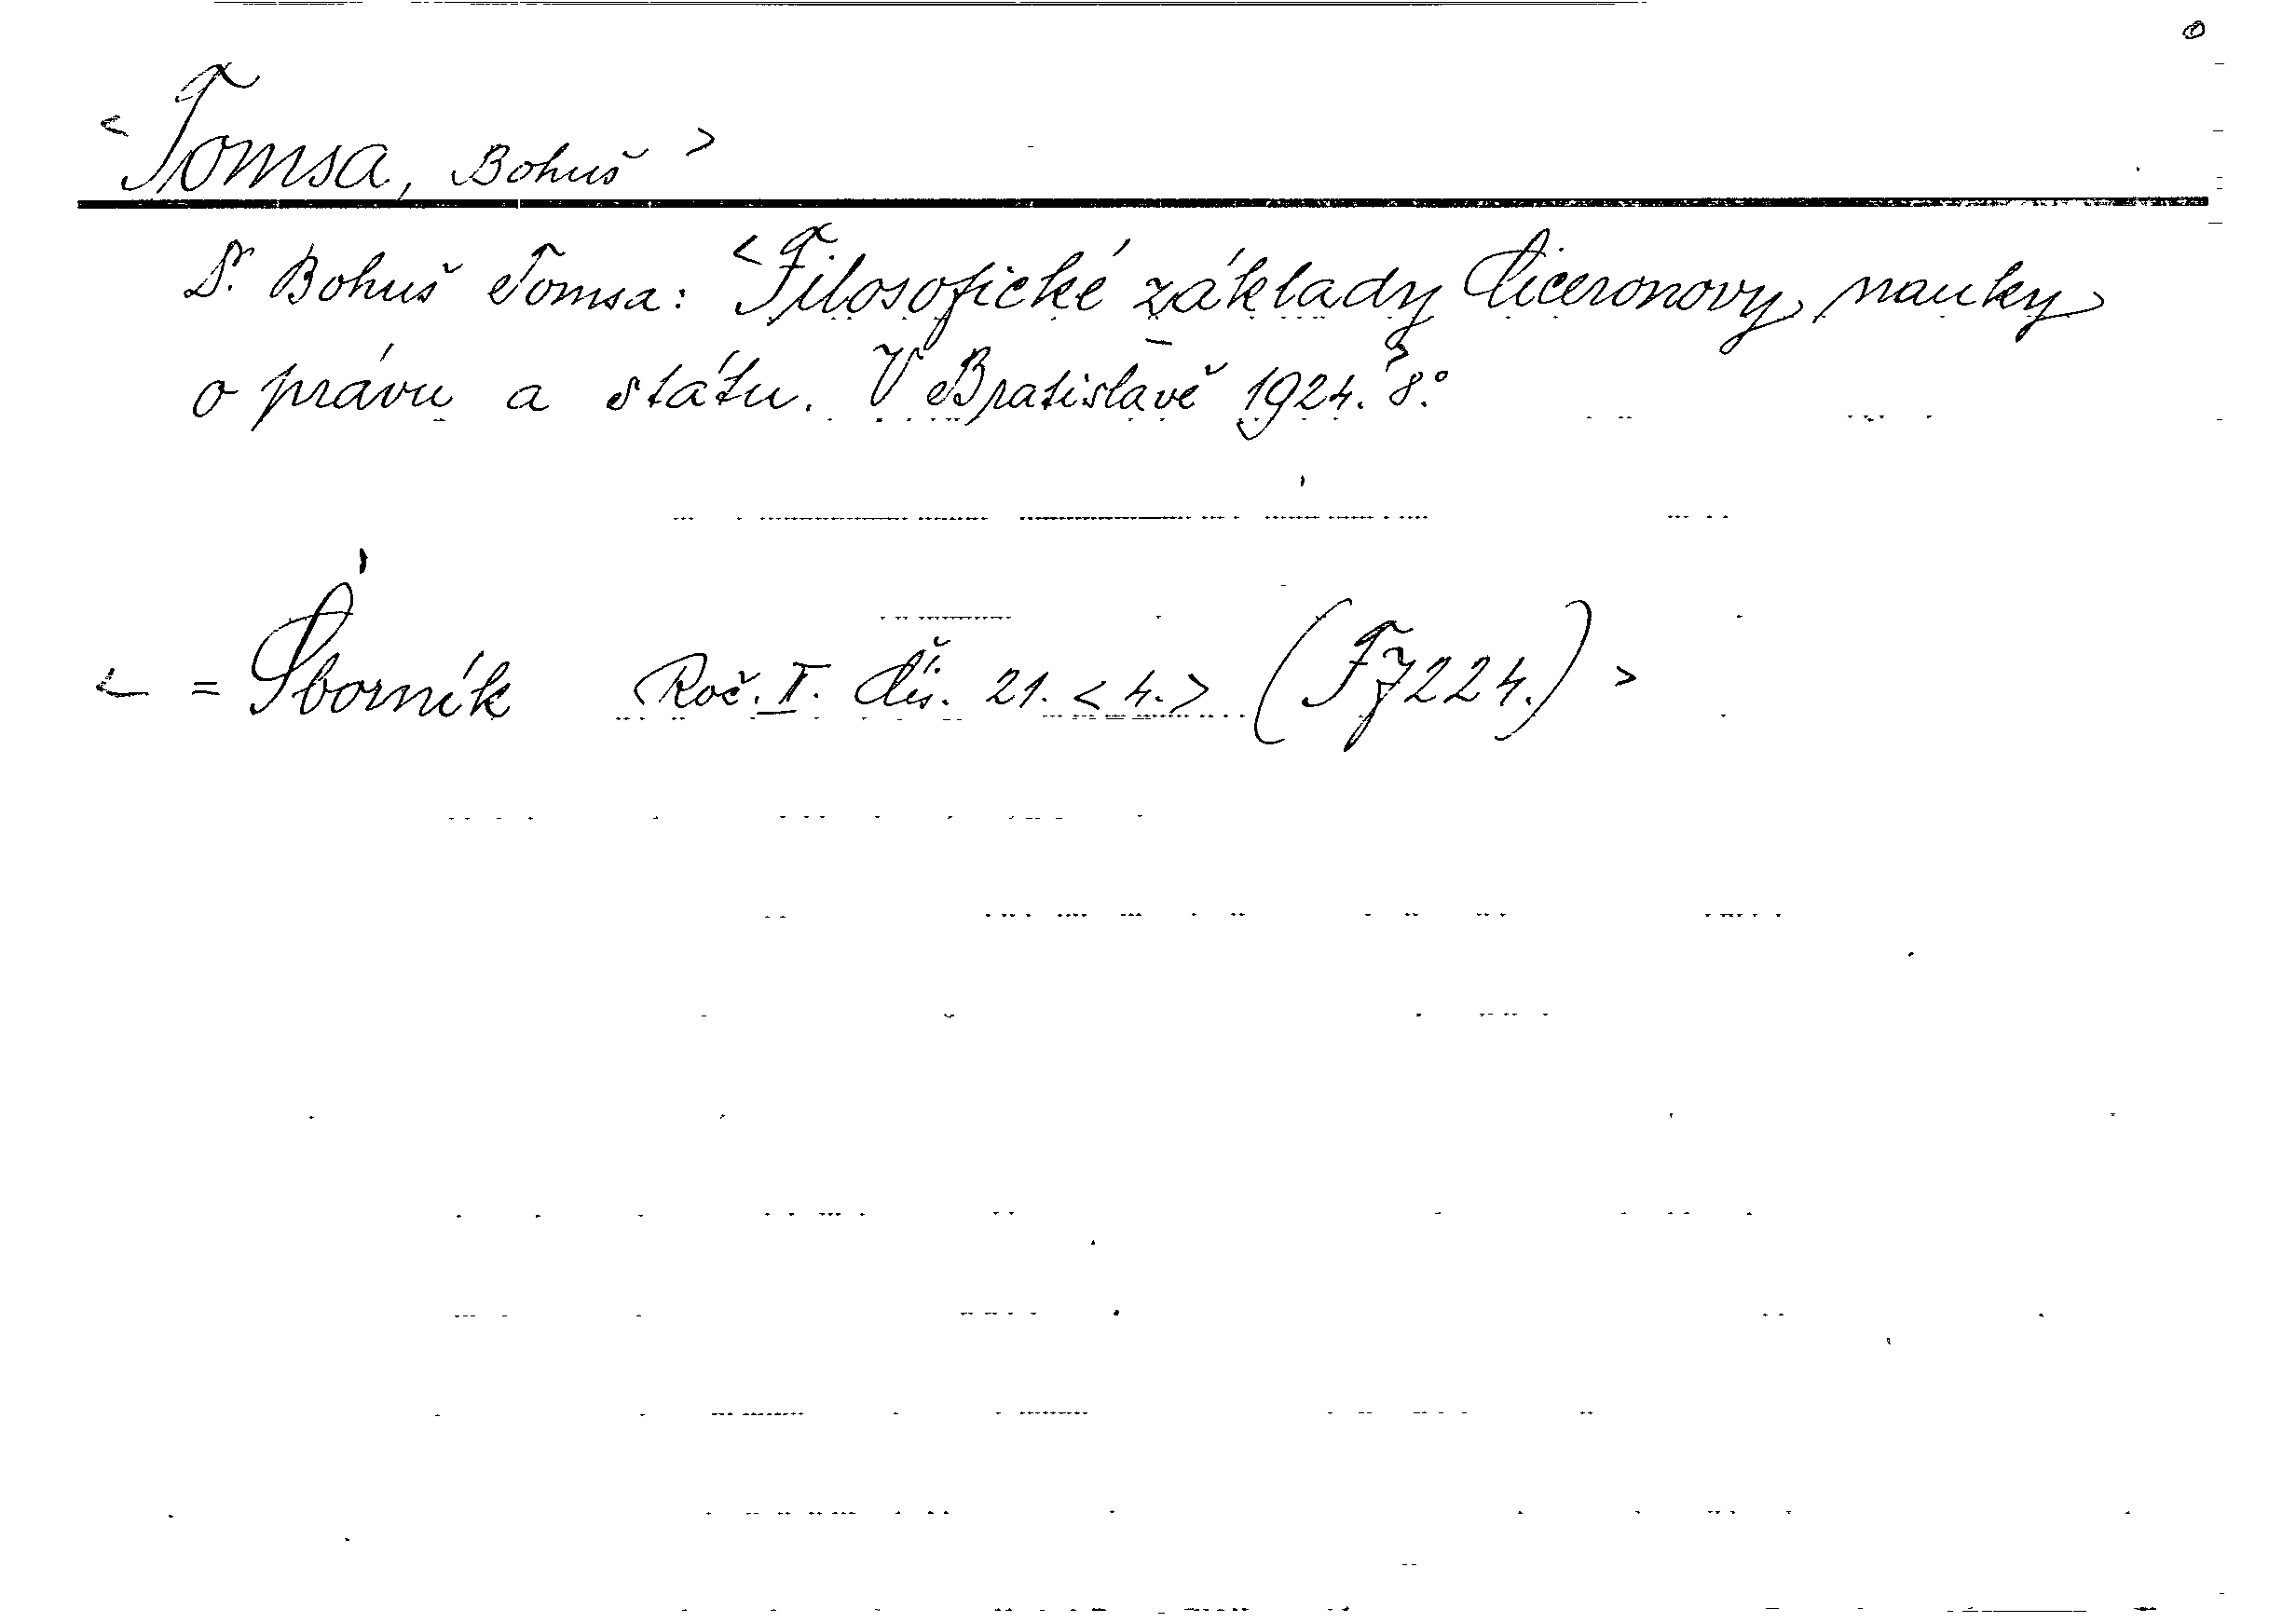 <Tomsa, Bohuš>
Dr. Bohuš Tomsa: <Filosofické základy Ciceronovy nauky
o právu a státu. V Bratislavě 1924.> 8.°
< = Sborník Roč. II. Čís. 21. <4.> (Fj 224.) >